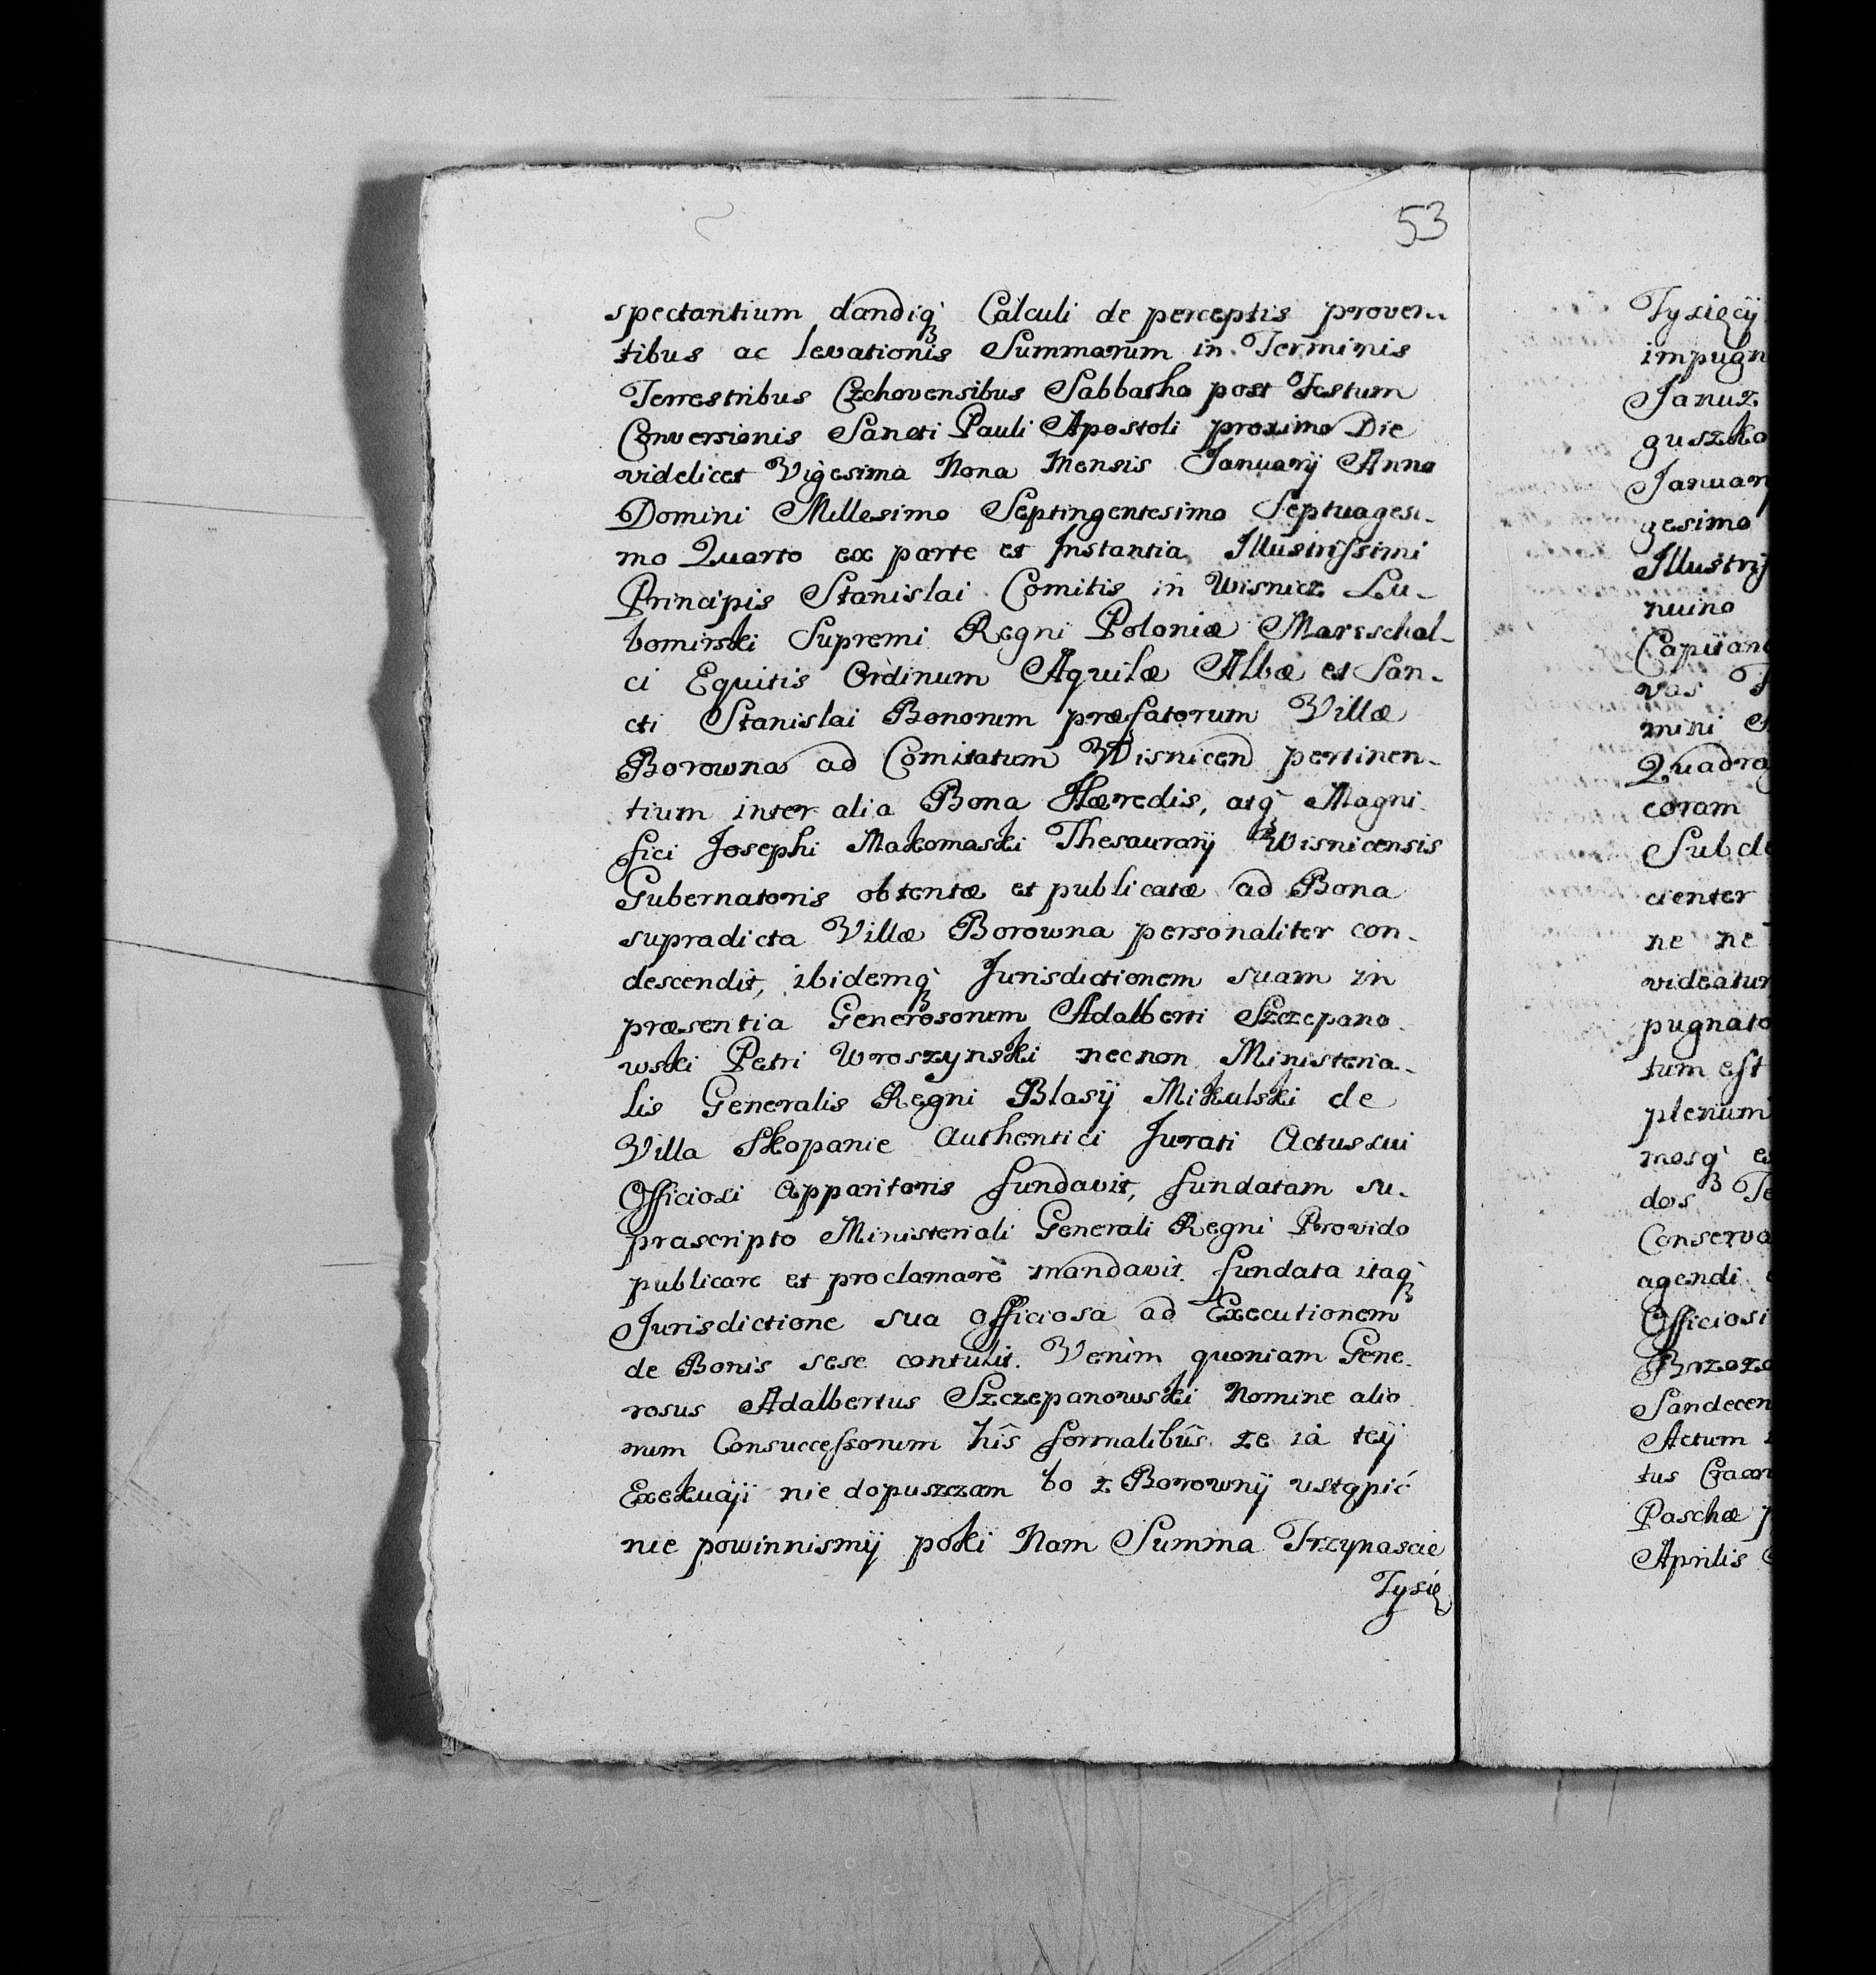 53
spectantium dandiq̀ʒ Calculi de perceptis proven-
tibus ac levationis Summarum in Terminis
Terrestribus Czchovensibus Sabbatho post Festum
Conversionis Sancti Pauli Apostoli proximo Die
videlicet Vigesima Nona Mensis Januarÿ Anno
Domini Millesimo Septingentesimo Septuagesi-
mo Quarto ex parte et Instantia Illustrissimi
Principis Stanislai Comitis in Wisnicz Lu-
bomirski Supremi Regni Poloniæ Mareschal-
ci Equitis Ordinum Aquilæ Albæ et San-
cti Stanislai Bonorum præfatorum Villæ
Borowna ad Comitatum Wisnicen pertinen-
tium inter alia Bona Hæredis, atq̀ʒ Magni-
fici Josephi Makomaski Thesaurarÿ Wisnicensis
Gubernatoris obtentæ et publicatæ ad Bona
supradicta Villæ Borowna personaliter con-
descendit, ibidemq̀ʒ Jurisdictionem suam in
præsentia Generosorum Adalberti Szczepano-
wski Petri Wroszynski necnon Ministeria-
lis Generalis Regni Blasÿ Mikulski de
Villa Skopanie Authentici Jurati Actus sui
Officiosi Apparitoris fundavit, fundatam su-
prascripto Ministeriali Generali Regni Provido
publicare et proclamare mandavit. fundata itaq̀ʒ
Jurisdictione sua Officiosa ad Executionem
de Bonis sese contulit. Verùm quoniam Gene-
rosus Adalbertus Szczepanowski Nomine alio-
rum Consuccessorum hîs formalibûs. ze iá teÿ
Exekucÿi nie dopuszczam bo z Borownÿ ustąpić
nie powinnismÿ poki Nam Summa Trzynascie
Tysię
Tysięcÿ
impugn
Janusz
guszko
Januar
gesimo
Illustris
nuino
Capitan
vas
mini
Quadrag
coram
Subde
cienter
ne ne
videatur
pugnato
tum est
plenum
mosq̀ʒ
dos Te
Conserva
agendi
Officiosi
Brzozo
Sandecen
Actum
tus
Paschæ
Aprilis